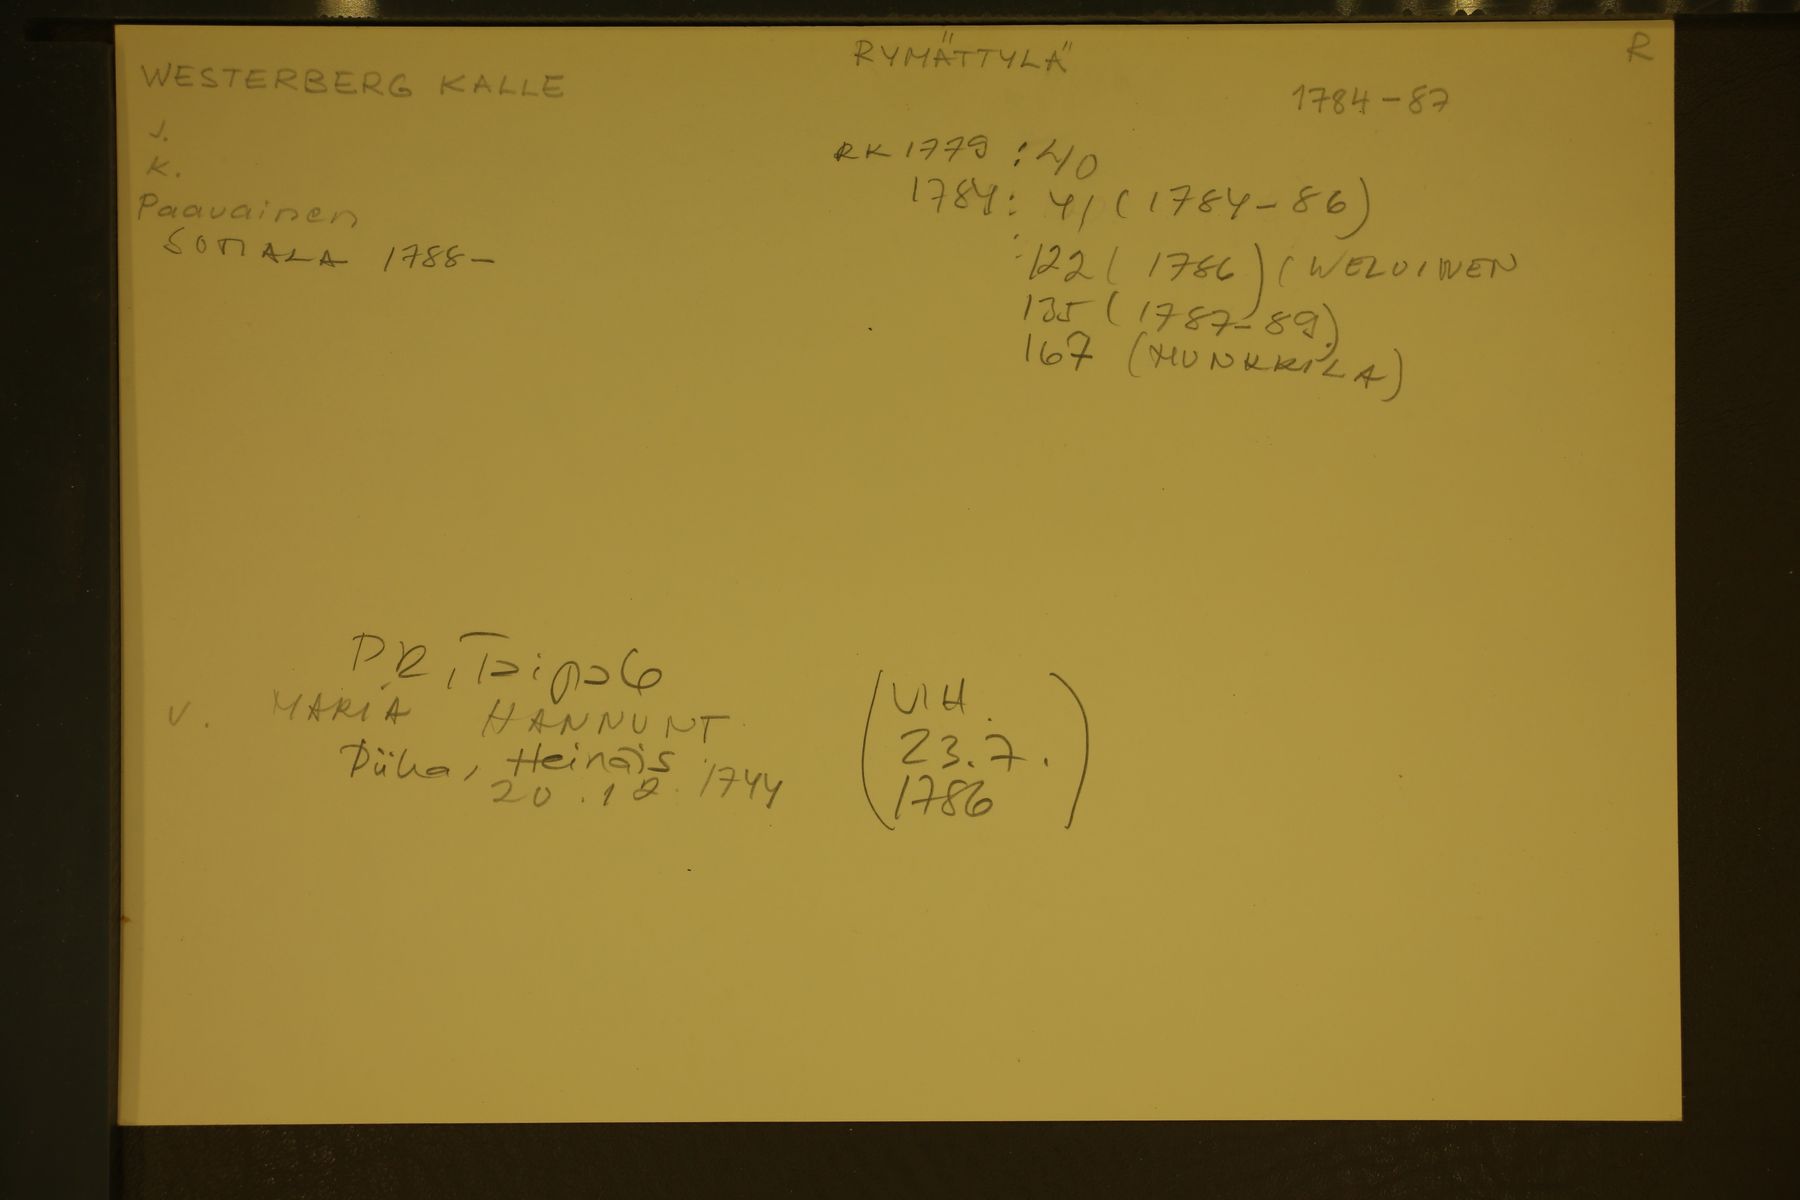 RYMÄTTYLÄ
R
WESTERBERG KALLE
1784-87
J.
K.
RK 1779 : 40
Paavainen
1784: 41 (1784-86)
1788-
: 122 (1786) (
135 (1787-89)
167 (MUNKKILA)
V. MARIA HANNUNT
Heinäis
20.12.1744
(VIH.
23.7.
1786)